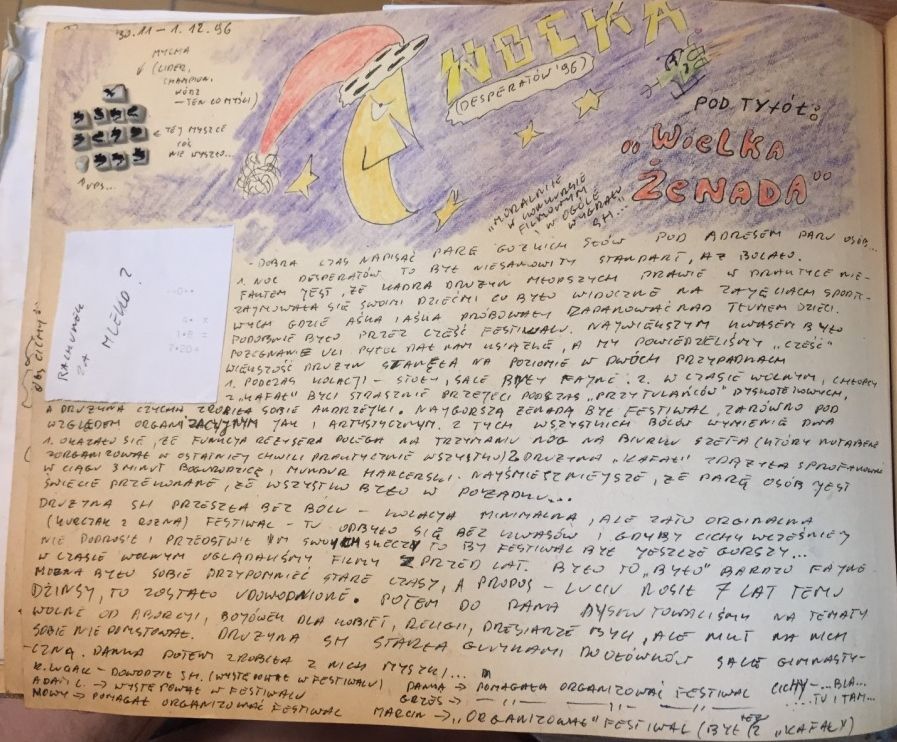 30.11 – 1.12.96
NOCKA
(DESPERATÓW '96)
POD TYTÓŁ:
"WIELKA
ŻENADA"
MYCKA
(LIDER,
CHAMPION,
WÓDZ
– TEN CO MYŚLI)
← TEJ MYSZCE
COŚ
NIE WYSZŁO...
"MORALNIE
W KONKURSIE
FILMOWYM
W OGÓLE
WYGRAŁA
SH..."
RACHUNEK
ZA MLEKO?
- DOBRA CZAS NAPISAĆ PARĘ GORZKICH SŁÓW POD ADRESEM PARU OSÓB...
1. NOC DESPERATÓW TO BYŁ NIESAMOWITY STANDART, AŻ BOLAŁO.
FAKTEM JEST, ŻE KADRA DRUŻYN MŁODSZYCH PRAWIE W PRAKTYCE NIE-
ZAJMOWAŁA SIĘ SWOIMI DZIEĆMI CO BYŁO WIDOCZNE NA ZAJĘCIACH SPORTO-
WYCH GDZIE AŚKA I AŚKA PRÓBOWAŁY ZAPANOWAĆ NAD TŁUMEM DZIECI.
PODOBNIE BYŁO PRZEZ CZĘŚĆ FESTIWALU. NAJWIĘKSZYM KWASEM BYŁO
POŻEGNANIE ULI PYTOL DAŁ NAM KSIĄŻKĘ, A MY POWIEDZELIŚMY "CZEŚĆ"
WIĘKSZOŚĆ DRUŻYN STANĘŁA NA POZIOMIE W DWÓCH PRZYPADKACH
1. PODCZAS KOLACJI – STOŁY, SALE BYŁY FAJNE. 2. W CZASIE WOLNYM, CHŁOPCY
Z "KAFAŁ" BYLI STRASZNIE PRZEJĘCI PODCZAS "PRZYTULAŃCÓW" DYSKOTEKOWYCH,
A DRUŻYNA CZYCHA ZROBIŁA SOBIE ANDRZEJKI. NAJGORSZĄ ŻENADĄ BYŁ FESTIWAL, ZARÓWNO POD
WZGLĘDEM ORGANIZACYJNYM JAK I ARTYSTYCZNYM. Z TYCH WSZYSTKICH BÓLÓW WYMIENIĘ DWA
1. OKAZAŁO SIĘ, ŻE FUNKCJA REŻYSERA POLEGA NA TRZYMANIU NÓG NA BIURKU SZEFA (KTÓRY NOTABENE
ZORGANIZOWAŁ W OSTATNIEJ CHWILI PRAKTYCZNIE WSZYSTKO) 2. DRUŻYNA "KAFAŁ" ZDĄŻYŁA SPROFANOWAĆ
W CIĄGU 3 MINUT BOGURODZICĘ I MUNDUR HARCERSKI. NAJŚMIESZNIEJSZE, ŻE PARĘ OSÓB JEST
ŚWIĘCIE PRZEKONANE, ŻE WSZYSTKO BYŁO W POŻADKU...
DRUŻYNA SH PRZESZŁA BEZ BÓLU – KOLACJA MINIMALNA, ALE ZATO ORGINALNA
(KURCZAK Z ROŻNA) FESTIWAL – TU ODBYŁO SIĘ BEZ KWASÓW I GDYBY CICHY WCZEŚNIEJ
NIE DOPROSIŁ I PRZEDSTWIŁ IM SWOICH SKECZY TO BY FESTIWAL BYŁ JESZCZE GORSZY...
W CZASIE WOLNYM OGLĄDALIŚMY FILMY SPRZED LAT. BYŁO TO "BYŁO" BARDZO FAJNE.
MOŻNA BYŁO SOBIE PRZYPOMNIEĆ STARE CZASY, A PROPOS – LUCIU NOSIŁ 7 LAT TEMU
DŻINSY, TO ZOSTAŁO UDOWODNIONE. POTEM DO RANA DYSKUTOWALIŚMY NA TEMATY
WOLNE OD ABORCJI, BOJÓWEK DLA KOBIET, RELIGII, DRESIARZE BYLI, ALE NIKT NA NICH
SOBIE NIE POMSTOWAŁ. DRUŻYNA SH STARŁA GLUTKAMI PODŁÓWKÓW SALĘ GIMNASTY-
CZNĄ. DANKA POTEM ZROBIŁA Z NICH MYSZKI...
K. WGAK – DOWODZIŁ SH. (WYSTĘPOWAŁ W FESTIWALU) DANKA → POMAGAŁA ORGANIZOWAĆ FESTIWAL CICHY – ...BLA...
ADAŚ C. → WYSTĘPOWAŁ W FESTIWALU GRZEŚ → —— 11 —— 11 —— ...TU I TAM...
NOWY → POMAGAŁ ORGANIZOWAĆ FESTIWAL MARCIN → "ORGANIZOWAŁ" FESTIWAL (BYŁ TEŻ Z "KAFAŁY)